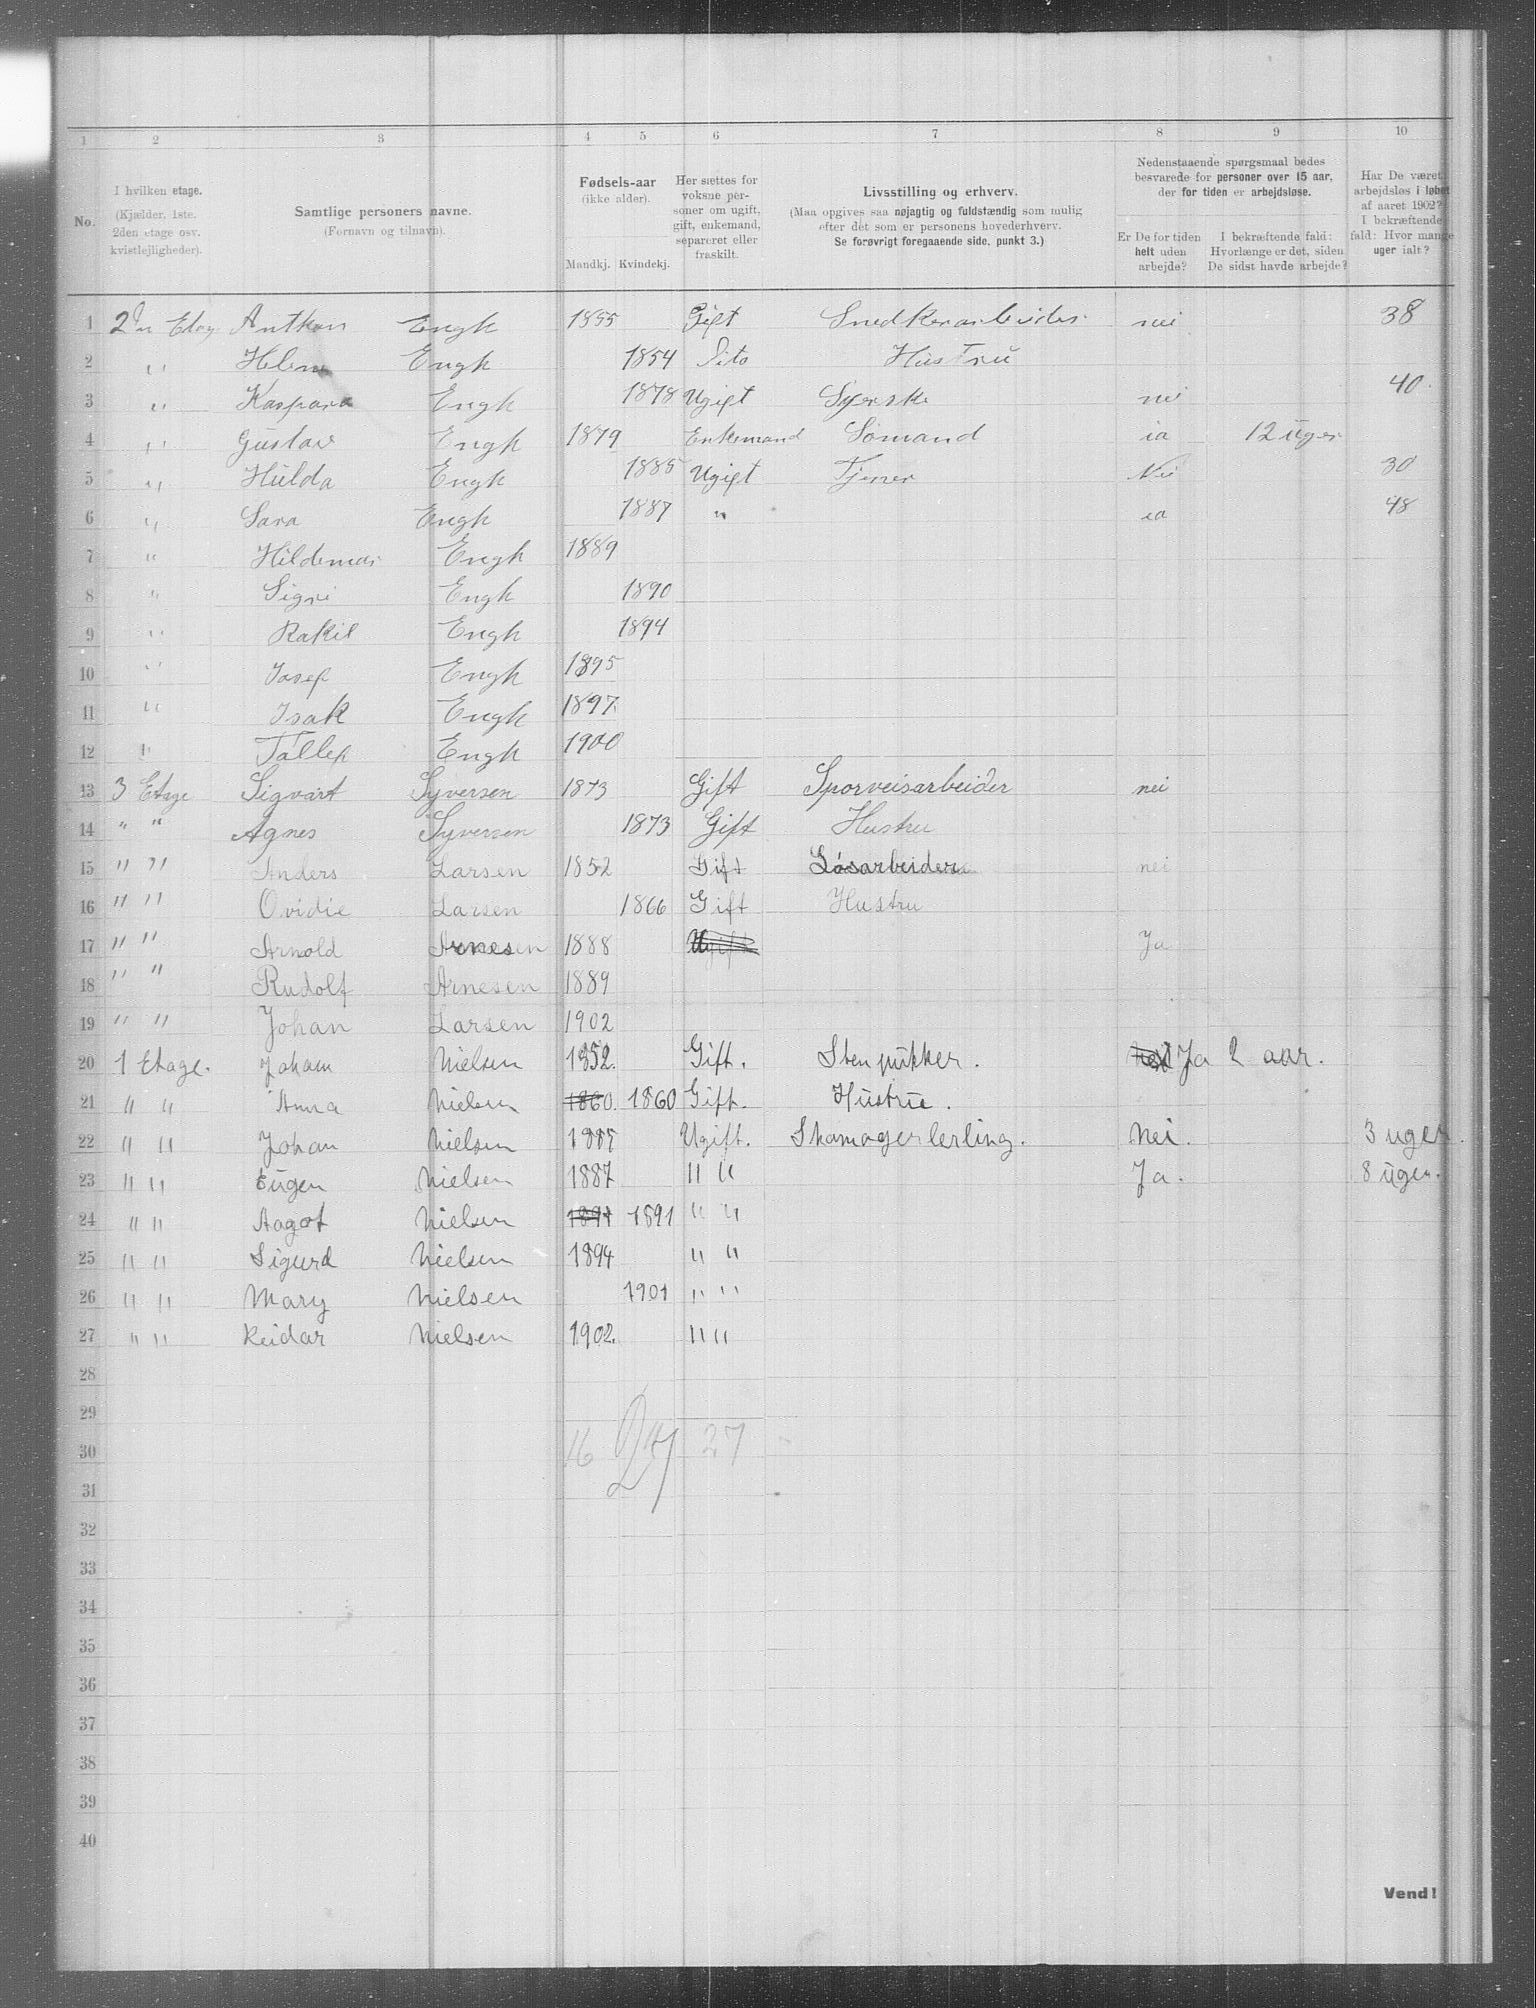 1 2 3 4 5 6 7 8 9 10
No.
I hvilken etage.
(Kjælder, 1ste.
2den etage osv.
kvistlejligheder).
Samtlige personers navne.
(Fornavn og tilnavn).
Fødsels-aar
(ikke alder).
Mandkj. Kvindekj.
Her sættes for
voksne per-
soner om ugift,
gift, enkemand,
separeret eller
fraskilt.
Livsstilling og erhverv.
(Man opgives saa nøjagtig og fuldstændig som mulig
efter det som er personens hovederhverv.
Se forøvrigt foregaaende side, punkt 3.)
Nedenstaaende spørgsmaal bedes
besvarede for personer over 15 aar,
der for tiden er arbejdsløse.
Er De for tiden
helt uden
arbejde?
I bekræftende fald:
Hvorlænge er det, siden
De sidst havde arbejde?
Har De været
arbejdsløs i løbet
af aaret 1902?
I bekræftende
fald: Hvor mange
uger ialt?
1 2den Etag Anthon Engh 1855 Gift Snedkerarbeider nei 38
2 " Helene Engh 1854 Dito Hustru
3 " Kaspara Engh 1878 Ugift Syerske nei 40
4 " Gustav Engh 1879 Enkemand Sømand ia 12 uger
5 " Hulda Engh 1885 Ugift Tjener Nei 30
6 " Sara Engh 1887 " ia 48
7 " Hildemar Engh 1889
8 " Signi Engh 1890
9 " Rakil Engh 1894
10 " Josef Engh 1895
11 " Isak Engh 1897
12 " Tallef Engh 1900
13 3 Etage Sigvart Syversen 1873 Gift Sporveisarbeider nei
14 " " Agnes Syversen 1873 Gift Hustru
15 " " Anders Larsen 1852 Gift Løsarbeider nei
16 " " Ovidie Larsen 1866 Gift Hustru
17 " " Arnold Arnesen 1888 Ugift Ja
18 " " Rudolf Arnesen 1889
19 " " Johan Larsen 1902
20 1 Etage. Johan Nielsen 1852. Gift. Stenpukker. nei Ja 2 aar.
21 " " Anna Nielsen 1860. 1860 Gift. Hustrue.
22 " " Johan Nielsen 1885 Ugift. Skamagerlerling. Nei. 3 uger.
23 " " Eugen Nielsen 1887 " " Ja. 8 uger.
24 " " Aagot Nielsen 1891 1891 " "
25 " " Sigurd Nielsen 1894 " "
26 " " Mary Nielsen 1901 " "
27 " " Reidar Nielsen 1902. " "
28
29
30 16 27
31
32
33
34
35
36
37
38
39
40
Vend!